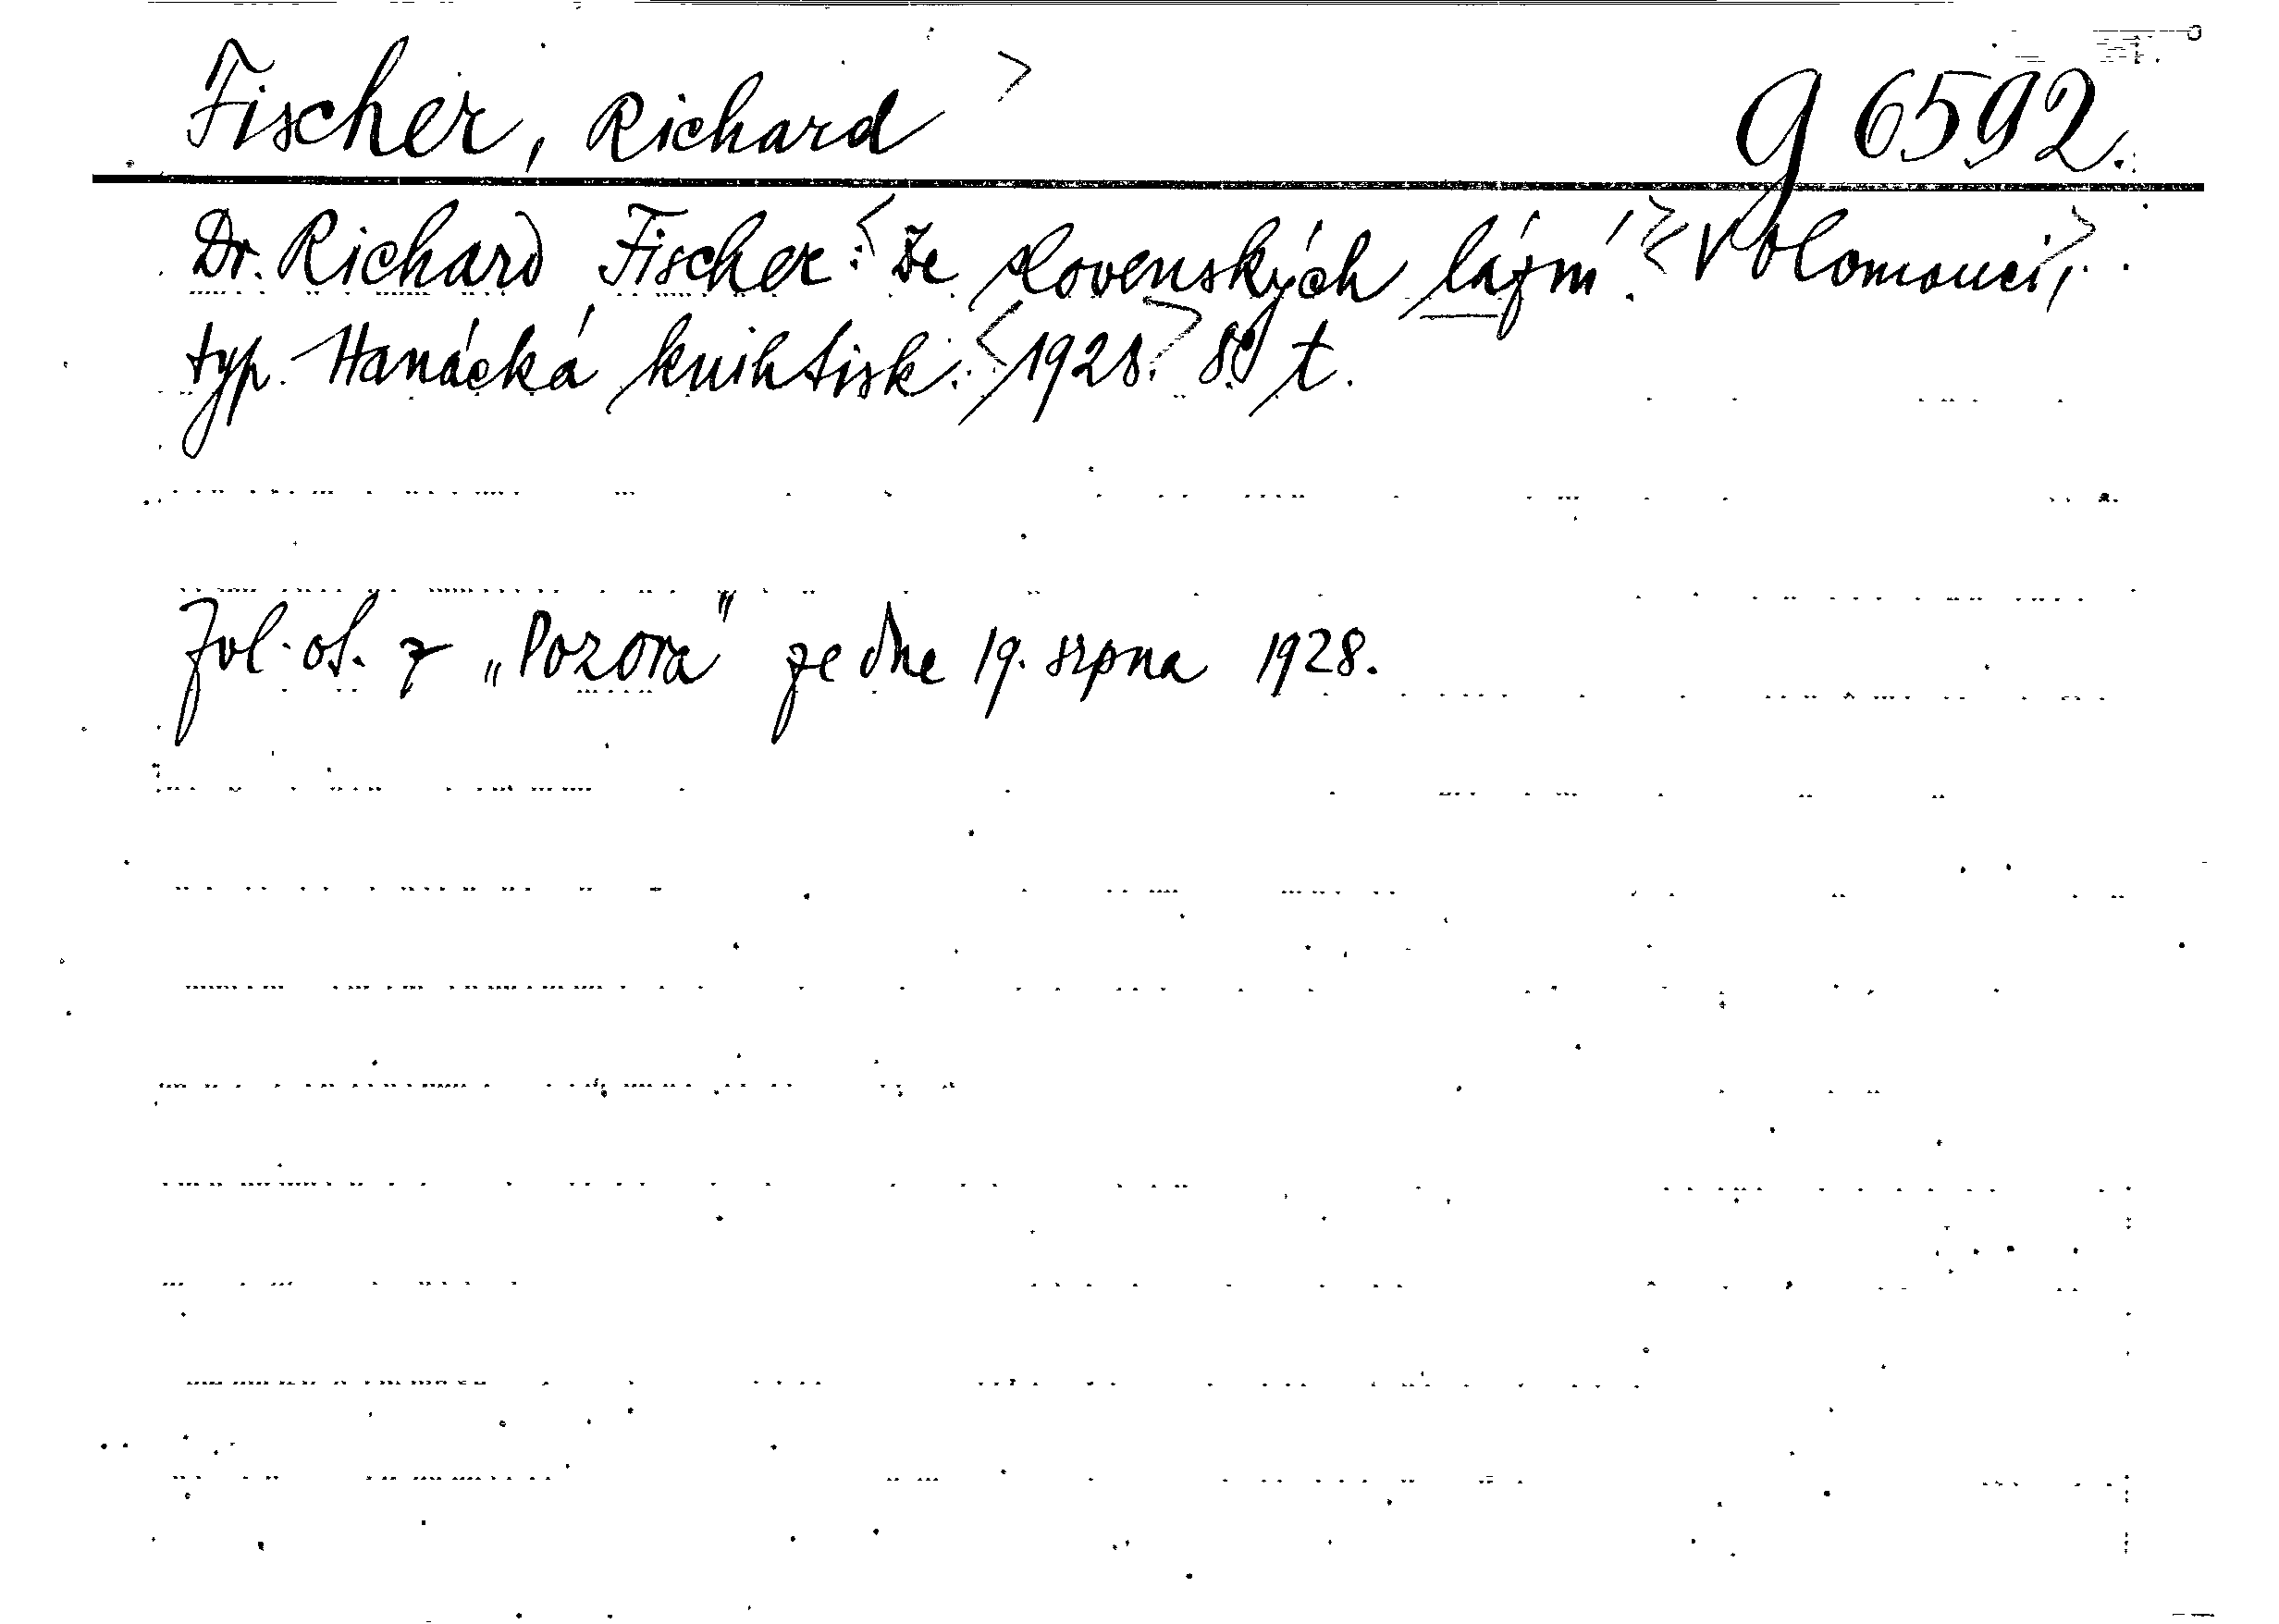 Fischer, Richard > g 6592.
Dr. Richard Fischer: < Ze slovenských lázní. > < V Olomouci, >
typ. Hanácká knihtisk. < 1928. > 8° t.
Zvl. ot. z „Pozora" ze dne 19. srpna 1928.